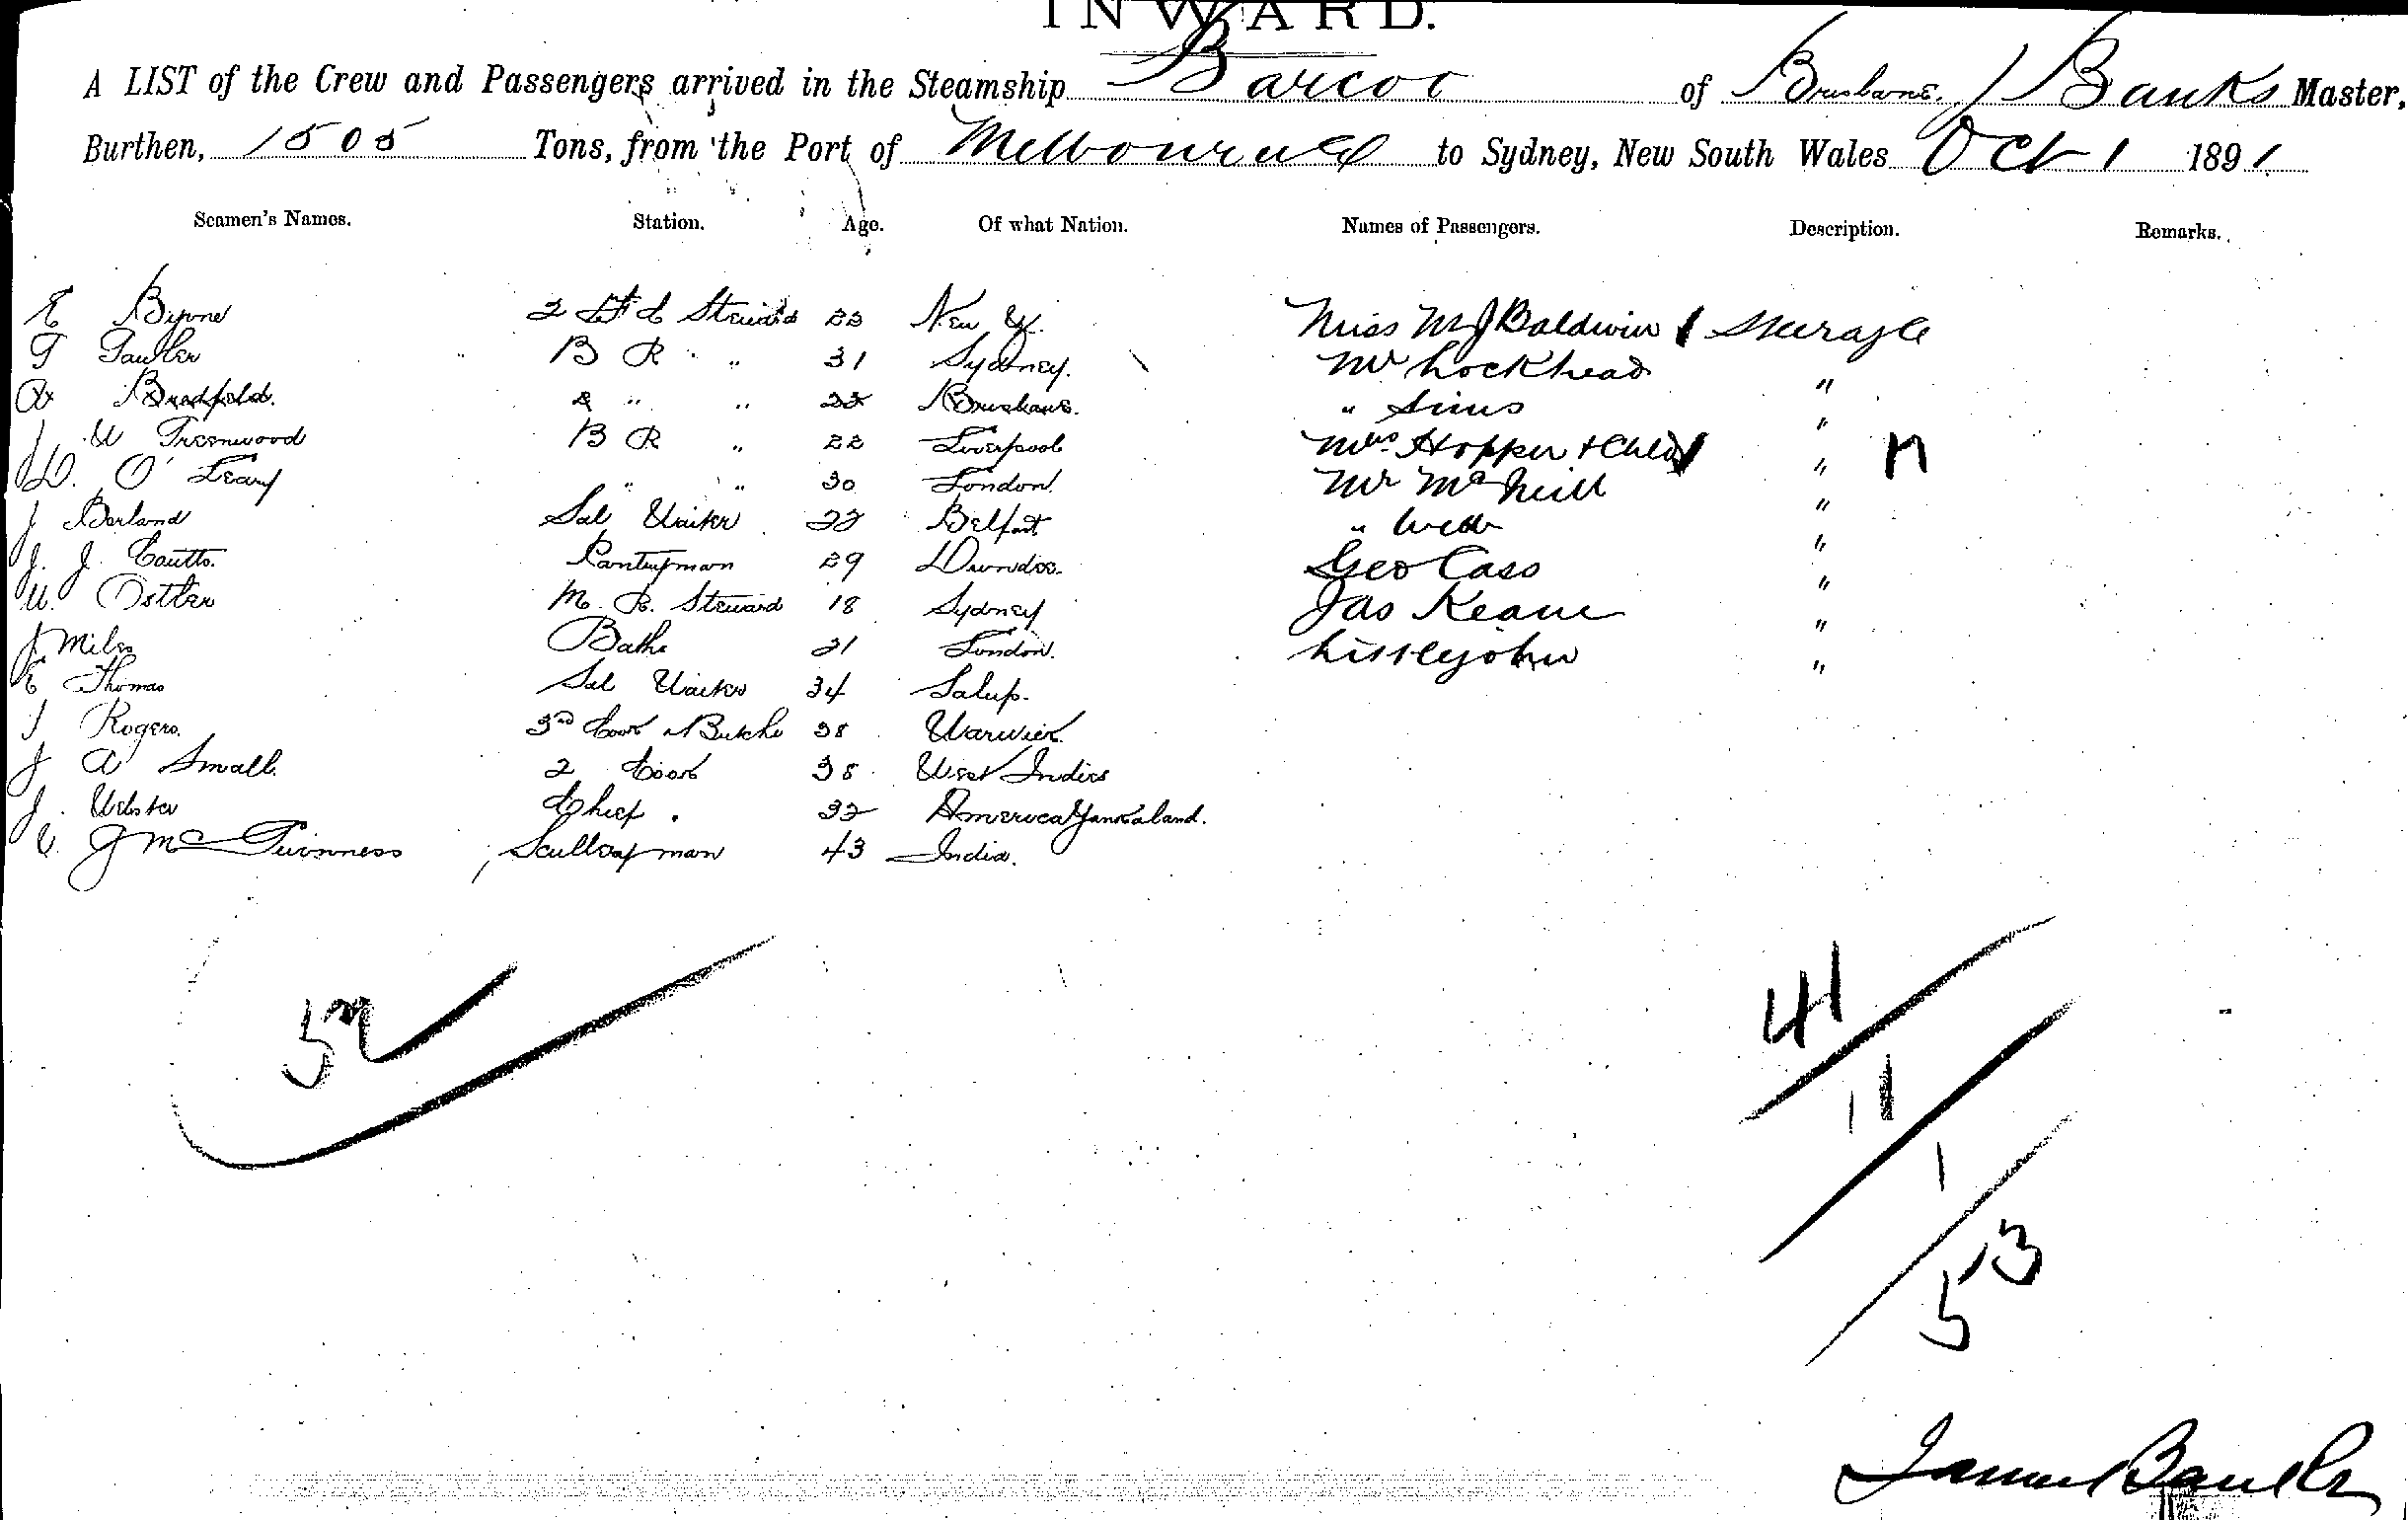 INWARD.
A LIST of the Crew and Passengers arrived in the Steamship Barcoo of Brisbane, J Banks Master,
Burthen, 1505 Tons, from the Port of Melbourne to Sydney, New South Wales Oct 1 1891
Seamen's Names. Station. Age. Of what Nation. Names of Passengers. Description. Remarks.
E Byrne 2 Steward 22 New Miss M J Baldwin Steerage
B R " " 31 Sydney. Mr Lockhead "
Bradfield. 2 " " 22 Brisbane. " Sims "
J W Greenwood B R " 22 Liverpool Mrs Hopper + Child " n
D. O'Leary " " " 30 London. Mr McNeill "
J Borland Sal Waiter 22 Belfast " "
J. J. Coutts. Pantryman 29 Dundee. Geo Cass "
W. Ostler M. R. Steward 18 Sydney Jas Keane "
J Miles Baths 21 London. Littlejohn "
E Thomas Sal Waiter 34 Salop.
J Rogers. 3rd Cook & Butcher 38 Warwick.
J A Small. 2 Cook 38 West Indies
J. Webster Chief " 32 America Yankeeland.
J McGuinness Scullery man 43 India.
52
41
11
1
53
James Banks